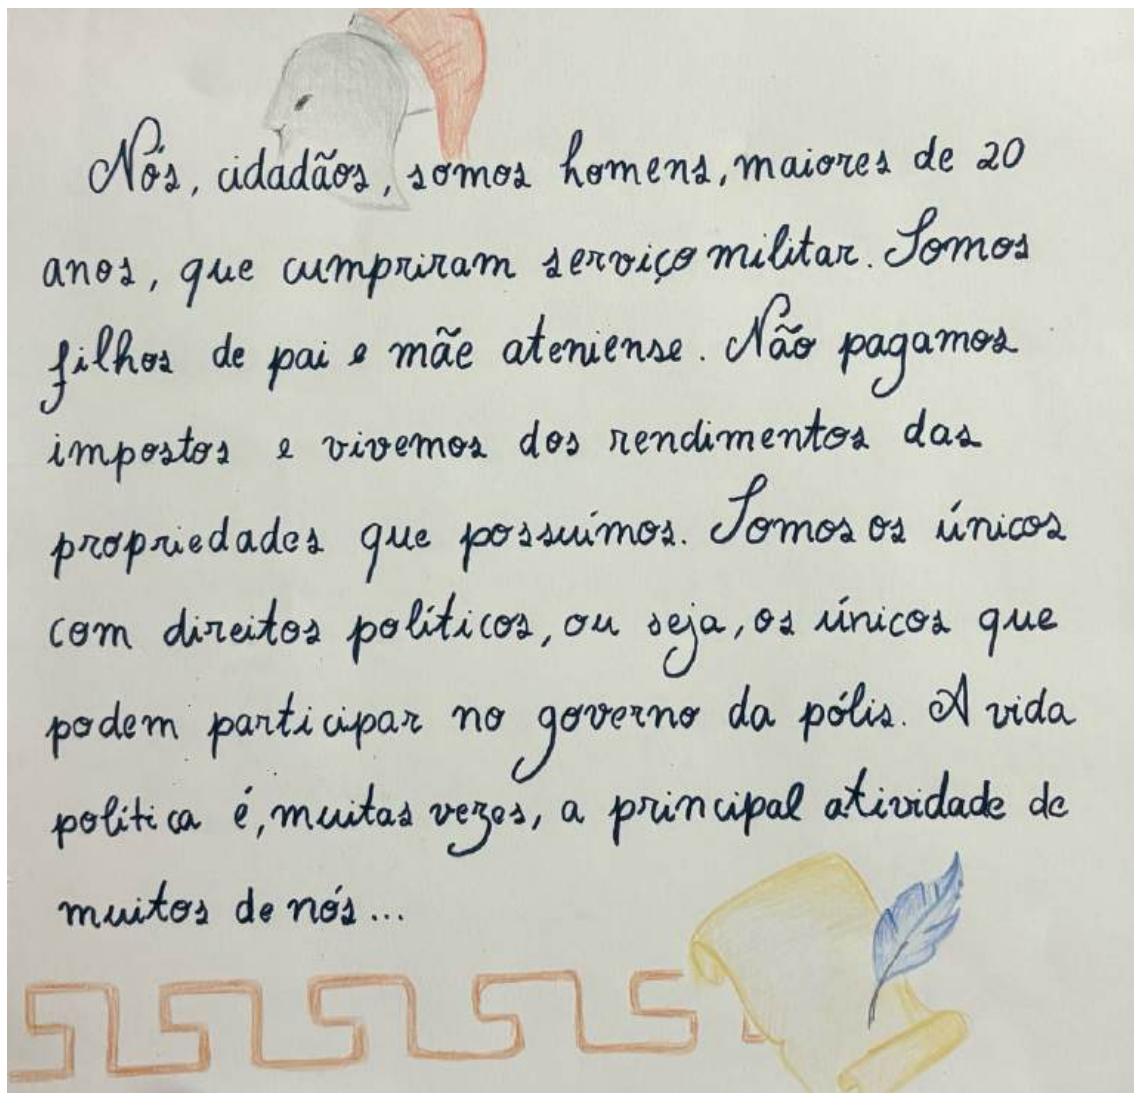 Nós, cidadãos, somos homens, maiores de 20
anos, que cumpriram serviço militar. Somos
filhos de pai e mãe ateniense. Não pagamos
impostos e vivemos dos rendimentos das
propriedades que possuímos. Somos os únicos
com direitos políticos, ou seja, os únicos que
podem participar no governo da pólis. A vida
política é, muitas vezes, a principal atividade de
muitos de nós...